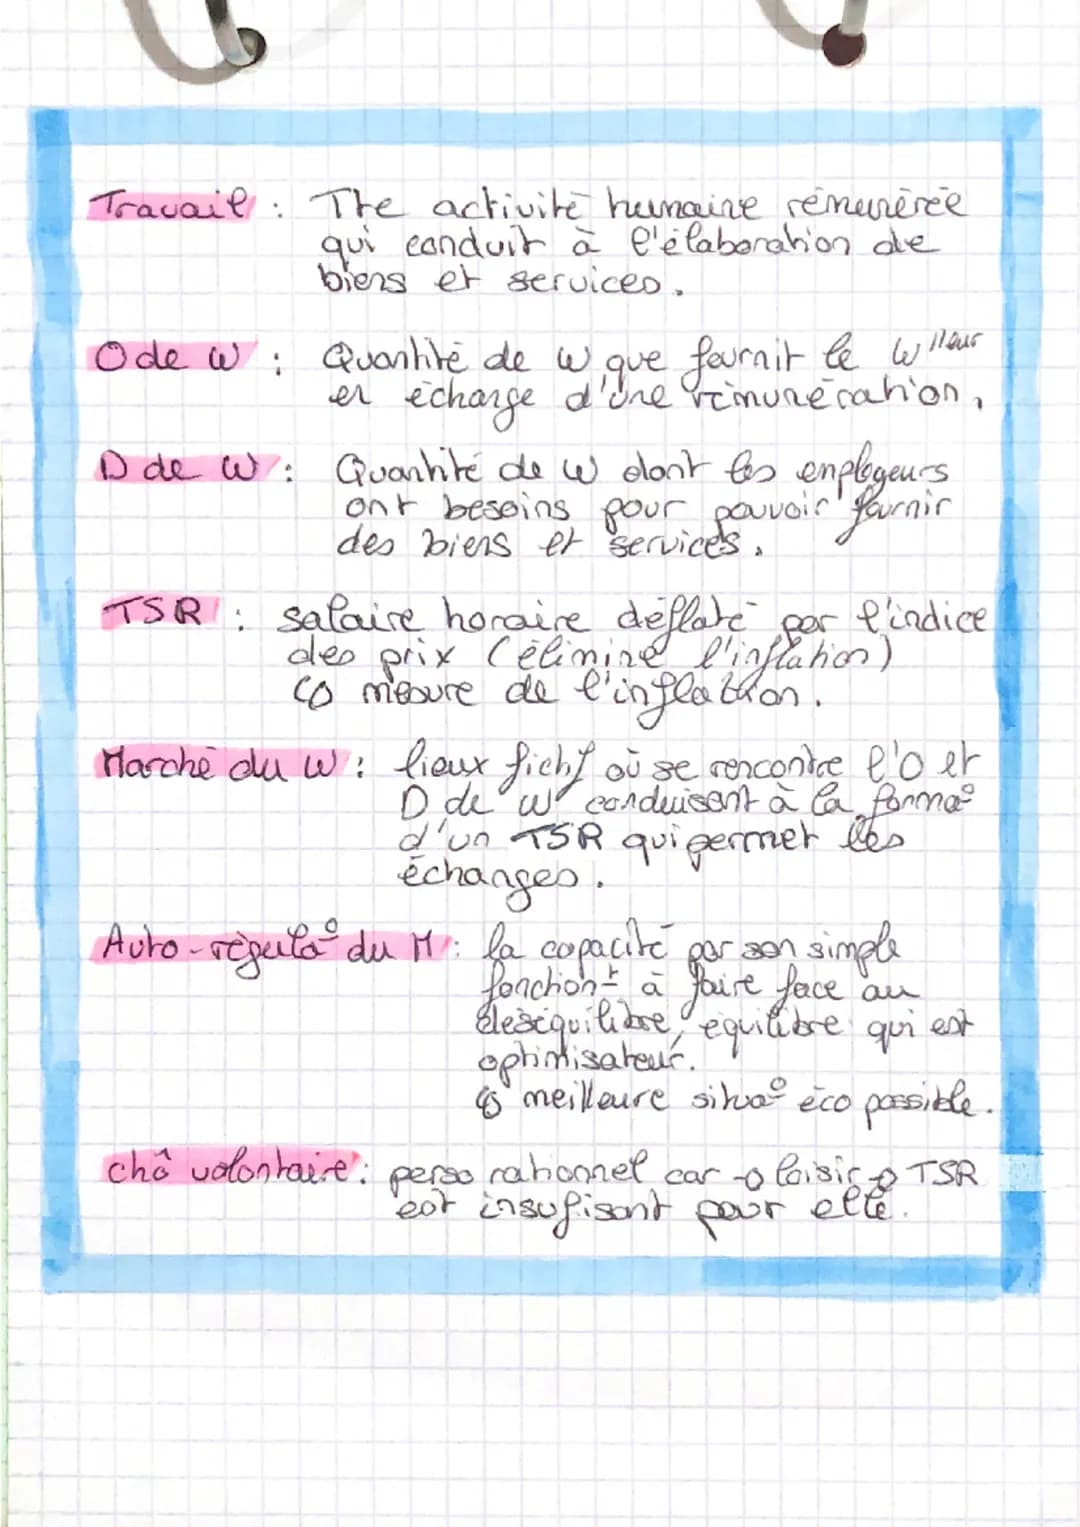 Travail : Tte activité humaine rémunérée
qui conduit à l'élaboration de
biens et services.
O de W : Quantité de W que fournit le Wlleur
en échange d'une rémunération.
D de W : Quantité de W dont les employeurs
ont besoins pour pouvoir fournir
des biens et services.
TSR : salaire horaire déflaté par l'indice
des prix (élimine l'inflation)
↳ mesure de l'inflation.
Marché du W : lieux fictif où se rencontre l'O et
D de W conduisant à la forma°
d'un TSR qui permet les
échanges.
Auto-régula° du M : la capacité par son simple
fonctiont à faire face au
déséquilibre, équilibre qui est
optimisateur.
↳ meilleure situa° éco possible.
chô volontaire : perso rationnel car → loisir → TSR
est insufisant pour elle.